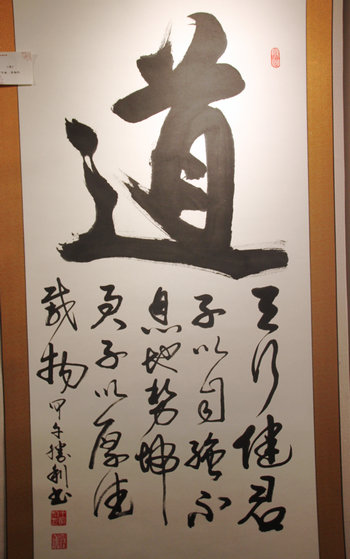 道
天行健君
子以自强不
息地势坤
君子以厚德
载物 甲午 利书